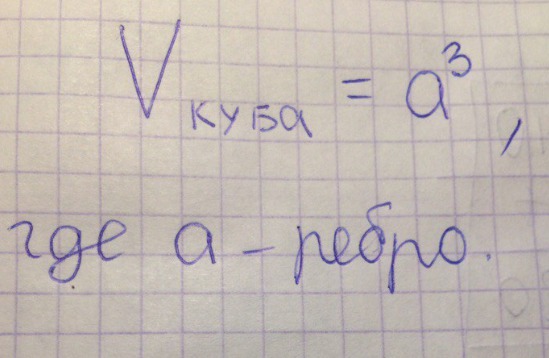 V куба = a³,
где a - ребро.